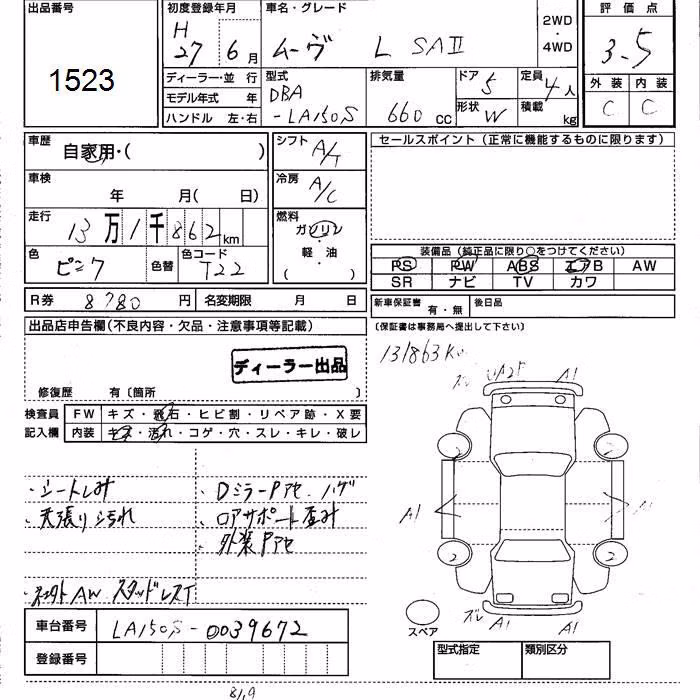 出品番号
1523
初度登録年月
H
27 6月
車名・グレード
ムーヴ L SAⅡ
2WD
・
4WD
評価点
3.5
外装 内装
C C
ディーラー・並行
モデル年式 年
ハンドル 左・右
型式
DBA
-LA150S
排気量
660 CC
ドア
5
形状
W
定員
4人
積載
kg
車歴
自家用・( )
車検
年 月( 日)
走行
13万1千862km
色
ピンク
色替
色コード
T22
R券 8780円
名変期限 月 日
シフト
A/T
冷房
A/C
燃料
ガソリン
・
軽油
( )
セールスポイント(正常に機能するものに限ります)
装備品(純正品に限り○をつけてください)
PS PW ABS エアB AW
SR ナビ TV カワ
新車保証書 有・無
後日品
(保証書は事務局へ提出して下さい)
出品店申告欄(不良内容・欠品・注意事項等記載)
ディーラー出品
修復歴 有〔箇所 〕
検査員
記入欄
FW キズ・飛石・ヒビ割・リペア跡・X要
内装 キズ・汚れ・コゲ・穴・スレ・キレ・破レ
・シートしみ
・天張り汚れ
・社外AW スタッドレスT
・DミラーPアセ ハゲ
・ロアサポート歪み
・外装Pアセ
131863Km
ズレ UA25 A1
2 2
A1 A1
2 2
ズレ A1 A1
スペア
車台番号 LA150S-0039672
登録番号
型式指定 類別区分
8/19